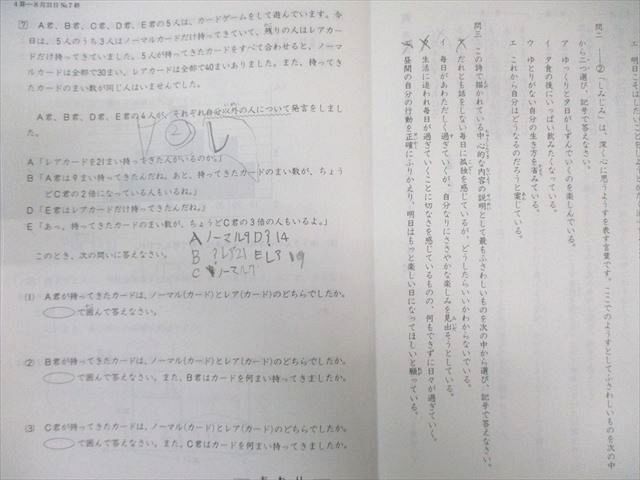 4算－8月31日 No.7
7 A君、B君、C君、D君、E君の5人は、カードゲームをして遊んでいます。今
日は、5人のうち3人はノーマルカードだけ持ってきていて、残りの人はレアカー
ドだけ持っていました。5人が持ってきたカードをすべて合わせると、ノーマ
ルカードは全部で30まい、レアカードは全部で40まいありました。また、持ってき
たカードのまい数が同じ人はいませんでした。
A君、B君、D君、E君の4人が、それぞれ自分以外の人について発言をしまし
た。
A「レアカードを21まい持ってきた人がいるのか。」
B「A君は9まい持ってきたんだね。あと、持ってきたカードのまい数が、ちょう
どC君の2倍になっている人もいるね。」
D「E君はレアカードだけ持ってきたんだね。」
E「あっ、持ってきたカードのまい数が、ちょうどC君の3倍の人もいるよ。」
Aノーマル9 D? 14
B ?レア21 Eレア 19
C ノーマル7
このとき、次の問いに答えなさい。
(1) A君が持ってきたカードは、ノーマル(カード)とレア(カード)のどちらでしたか。
で囲んで答えなさい。
(2) B君が持ってきたカードは、ノーマル(カード)とレア(カード)のどちらでしたか。
で囲んで答えなさい。また、B君はカードを何まい持ってきましたか。
(3) C君が持ってきたカードは、ノーマル(カード)とレア(カード)のどちらでしたか。
で囲んで答えなさい。また、C君はカードを何まい持ってきましたか。
問二 ――②「しみじみ」は、深く心に思うようすを表す言葉です。ここでのようすとしてふさわしいものを次の中
から二つ選び、記号で答えなさい。
ア ゆっくりと夕日がしずんでいくのを楽しんでいる。
イ 夕食の後にいっぱい飲みたくなっている。
ウ ゆとりがない自分の生き方を省みている。
エ これから自分はどうなるのだろうと案じている。
問三 この詩で描かれている中心的な内容の説明として最もふさわしいものを次の中から選び、記号で答えなさい。
ア だれとも話をしない毎日に孤独を感じているが、どうしたらいいかわからないでいる。
イ 毎日があわただしく過ぎていくが、自分なりにささやかな楽しみを見出そうとしている。
ウ 生活に追われ毎日が過ぎていくことに切なさを感じているものの、何もできずに日々が過ぎていく。
エ 昼間の自分の行動を正確にふりかえり、明日はもっと楽しい日になってほしいと願っている。